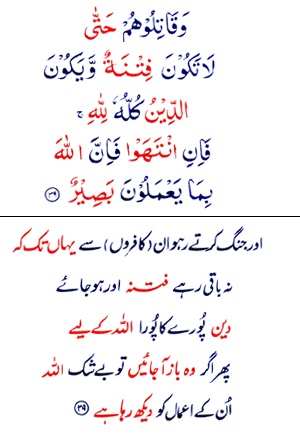 وَقَاتِلُوْهُمْ حَتّٰى
لَا تَكُوْنَ فِتْنَةٌ وَّيَكُوْنَ
الدِّيْنُ كُلُّهٗ لِلّٰهِ ۚ
فَاِنِ انْتَهَوْا فَاِنَّ اللّٰهَ
بِمَا يَعْمَلُوْنَ بَصِيْرٌ ﴿۳۹﴾
اور جنگ کرتے رہو ان (کافروں) سے یہاں تک کہ
نہ باقی رہے فتنہ اور ہوجائے
دین پُورے کا پُورا اللہ کے لیے
پھر اگر وہ باز آجائیں تو بے شک اللہ
اُن کے اعمال کو دیکھ رہا ہے ﴿۳۹﴾